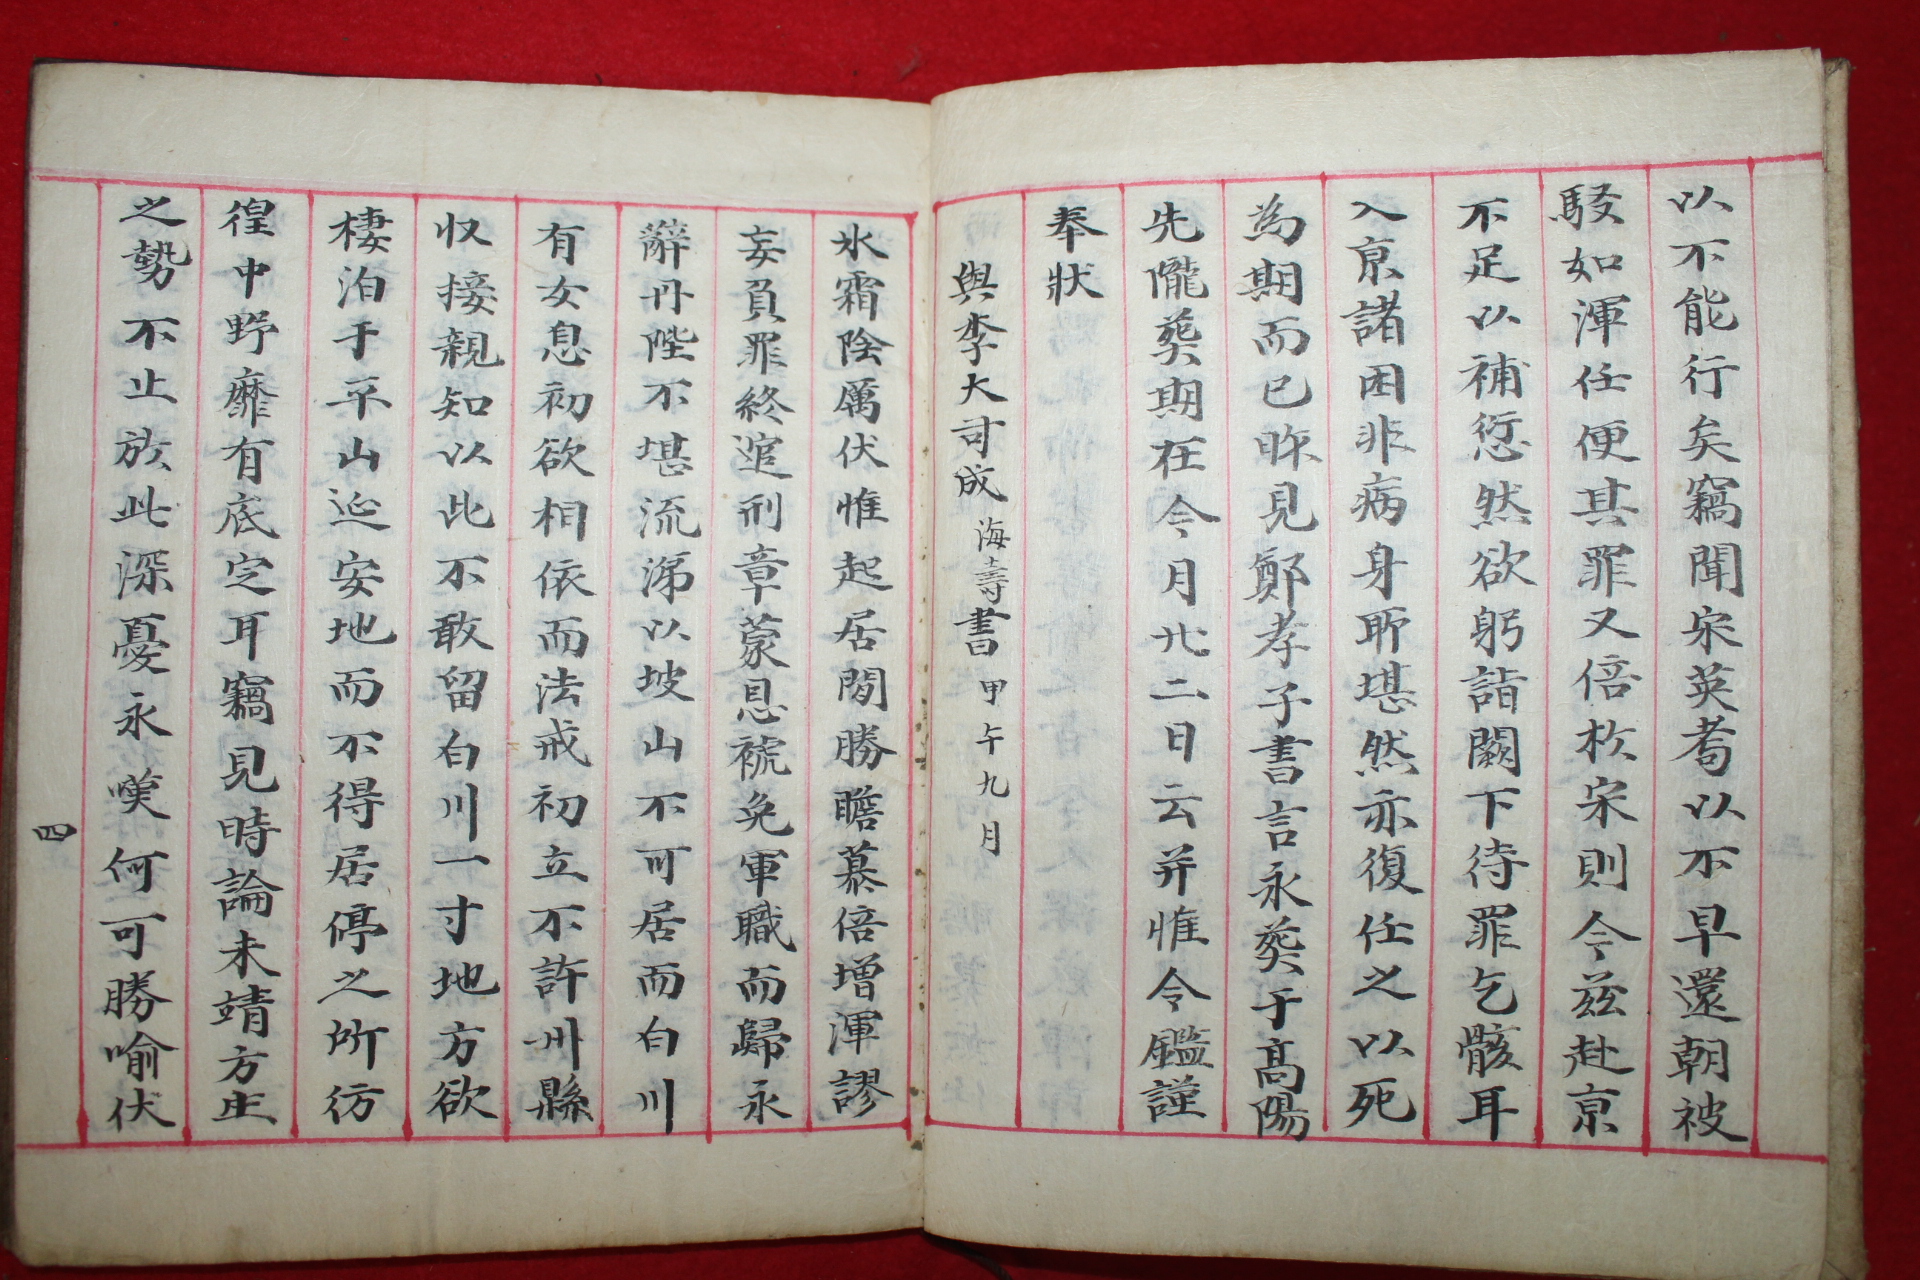 以不能行矣竊聞宋英耉以不早還朝被
駁如渾任便其罪又倍於宋則今茲赴京
不足以補愆然欲躬詣闕下待罪乞骸耳
入京諸困非病身所堪然亦復任之以死
為期而已昨見鄭孝子書言永葬于高陽
先隴葬期在今月廿二日云并惟令鑑謹
奉狀
與李大司成海壽書甲午九月
氷霜陰厲伏惟起居閒勝瞻慕倍增渾謬
妄負罪終逭刑章蒙恩褫免軍職而歸永
辭丹陛不堪流涕以坡山不可居而白川
有女息初欲相依而法戒初立不許州縣
収接親知以此不敢留白川一寸地方欲
棲泊于平山延安地而不得居停之所彷
徨中野靡有底定耳竊見時論未靖方生
之勢不止於此深憂永嘆何可勝喻伏
四